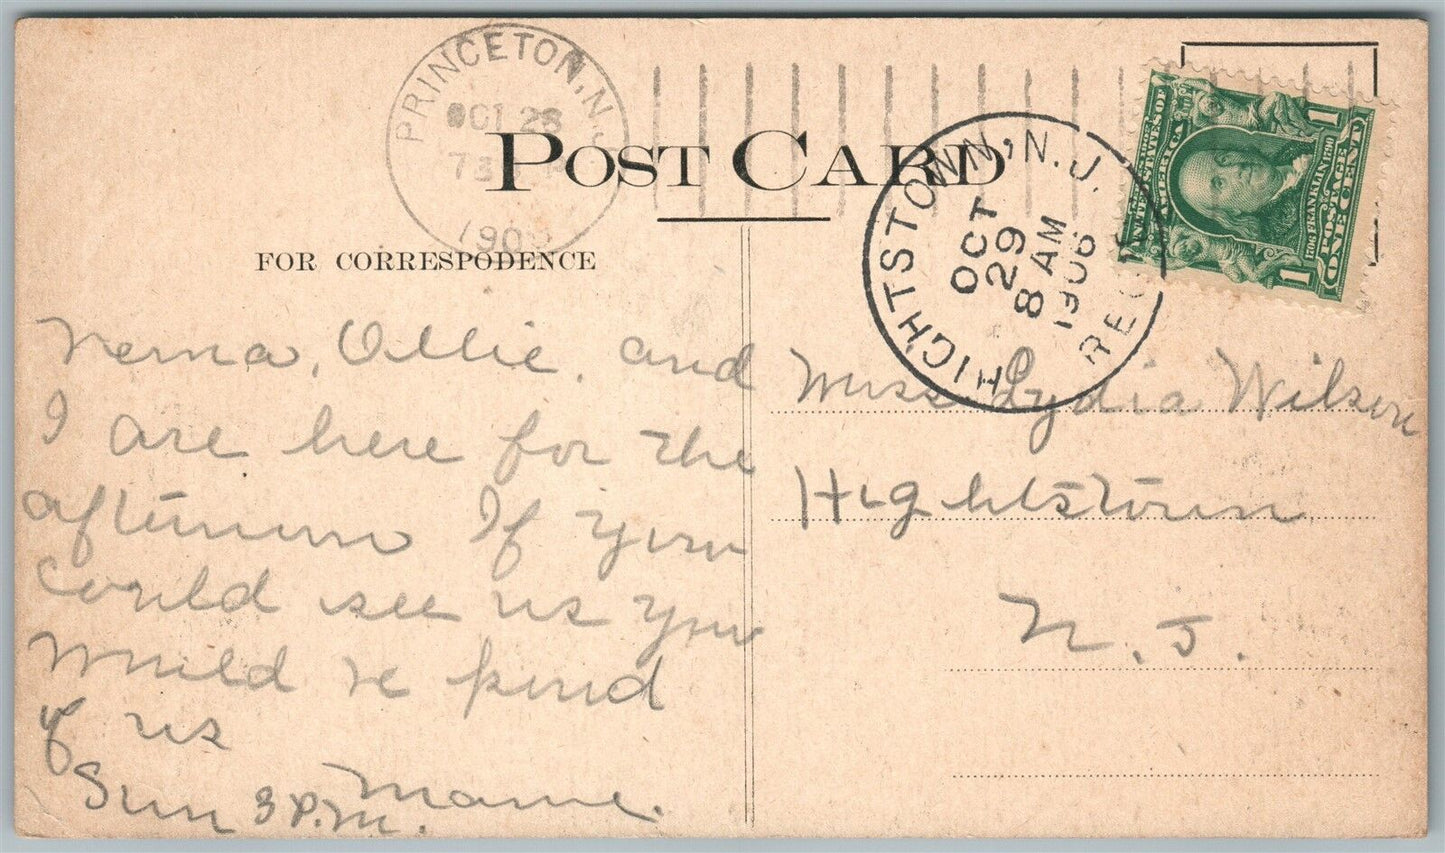 PRINCETON, N.J.
OCT 28
7 30 P
190
POST CARD
HIGHTSTOWN, N.J.
OCT
29
8 AM
1906
REC'D
SERIES 1902
UNITED STATES OF
AMERICA
1706 FRANKLIN 1790
POSTAGE
ONE CENT
1 1
FOR CORRESPODENCE
Verna, Ollie, and
I are here for the
afternoon If you
could see us you
would be proud
of us
Mame.
Sun 3 P.M.
Miss Lydia Wilson
Hightstown
N. J.